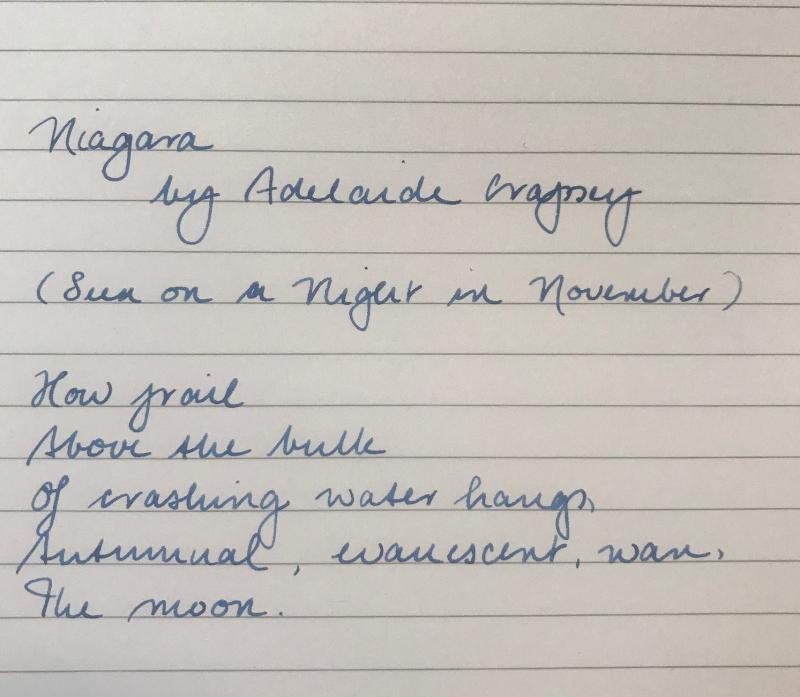 Niagara
by Adelaide Crapsey
(Seen on a Night in November)
How frail
Above the bulk
Of crashing water hangs,
Autumnal, evanescent, wan,
The moon.